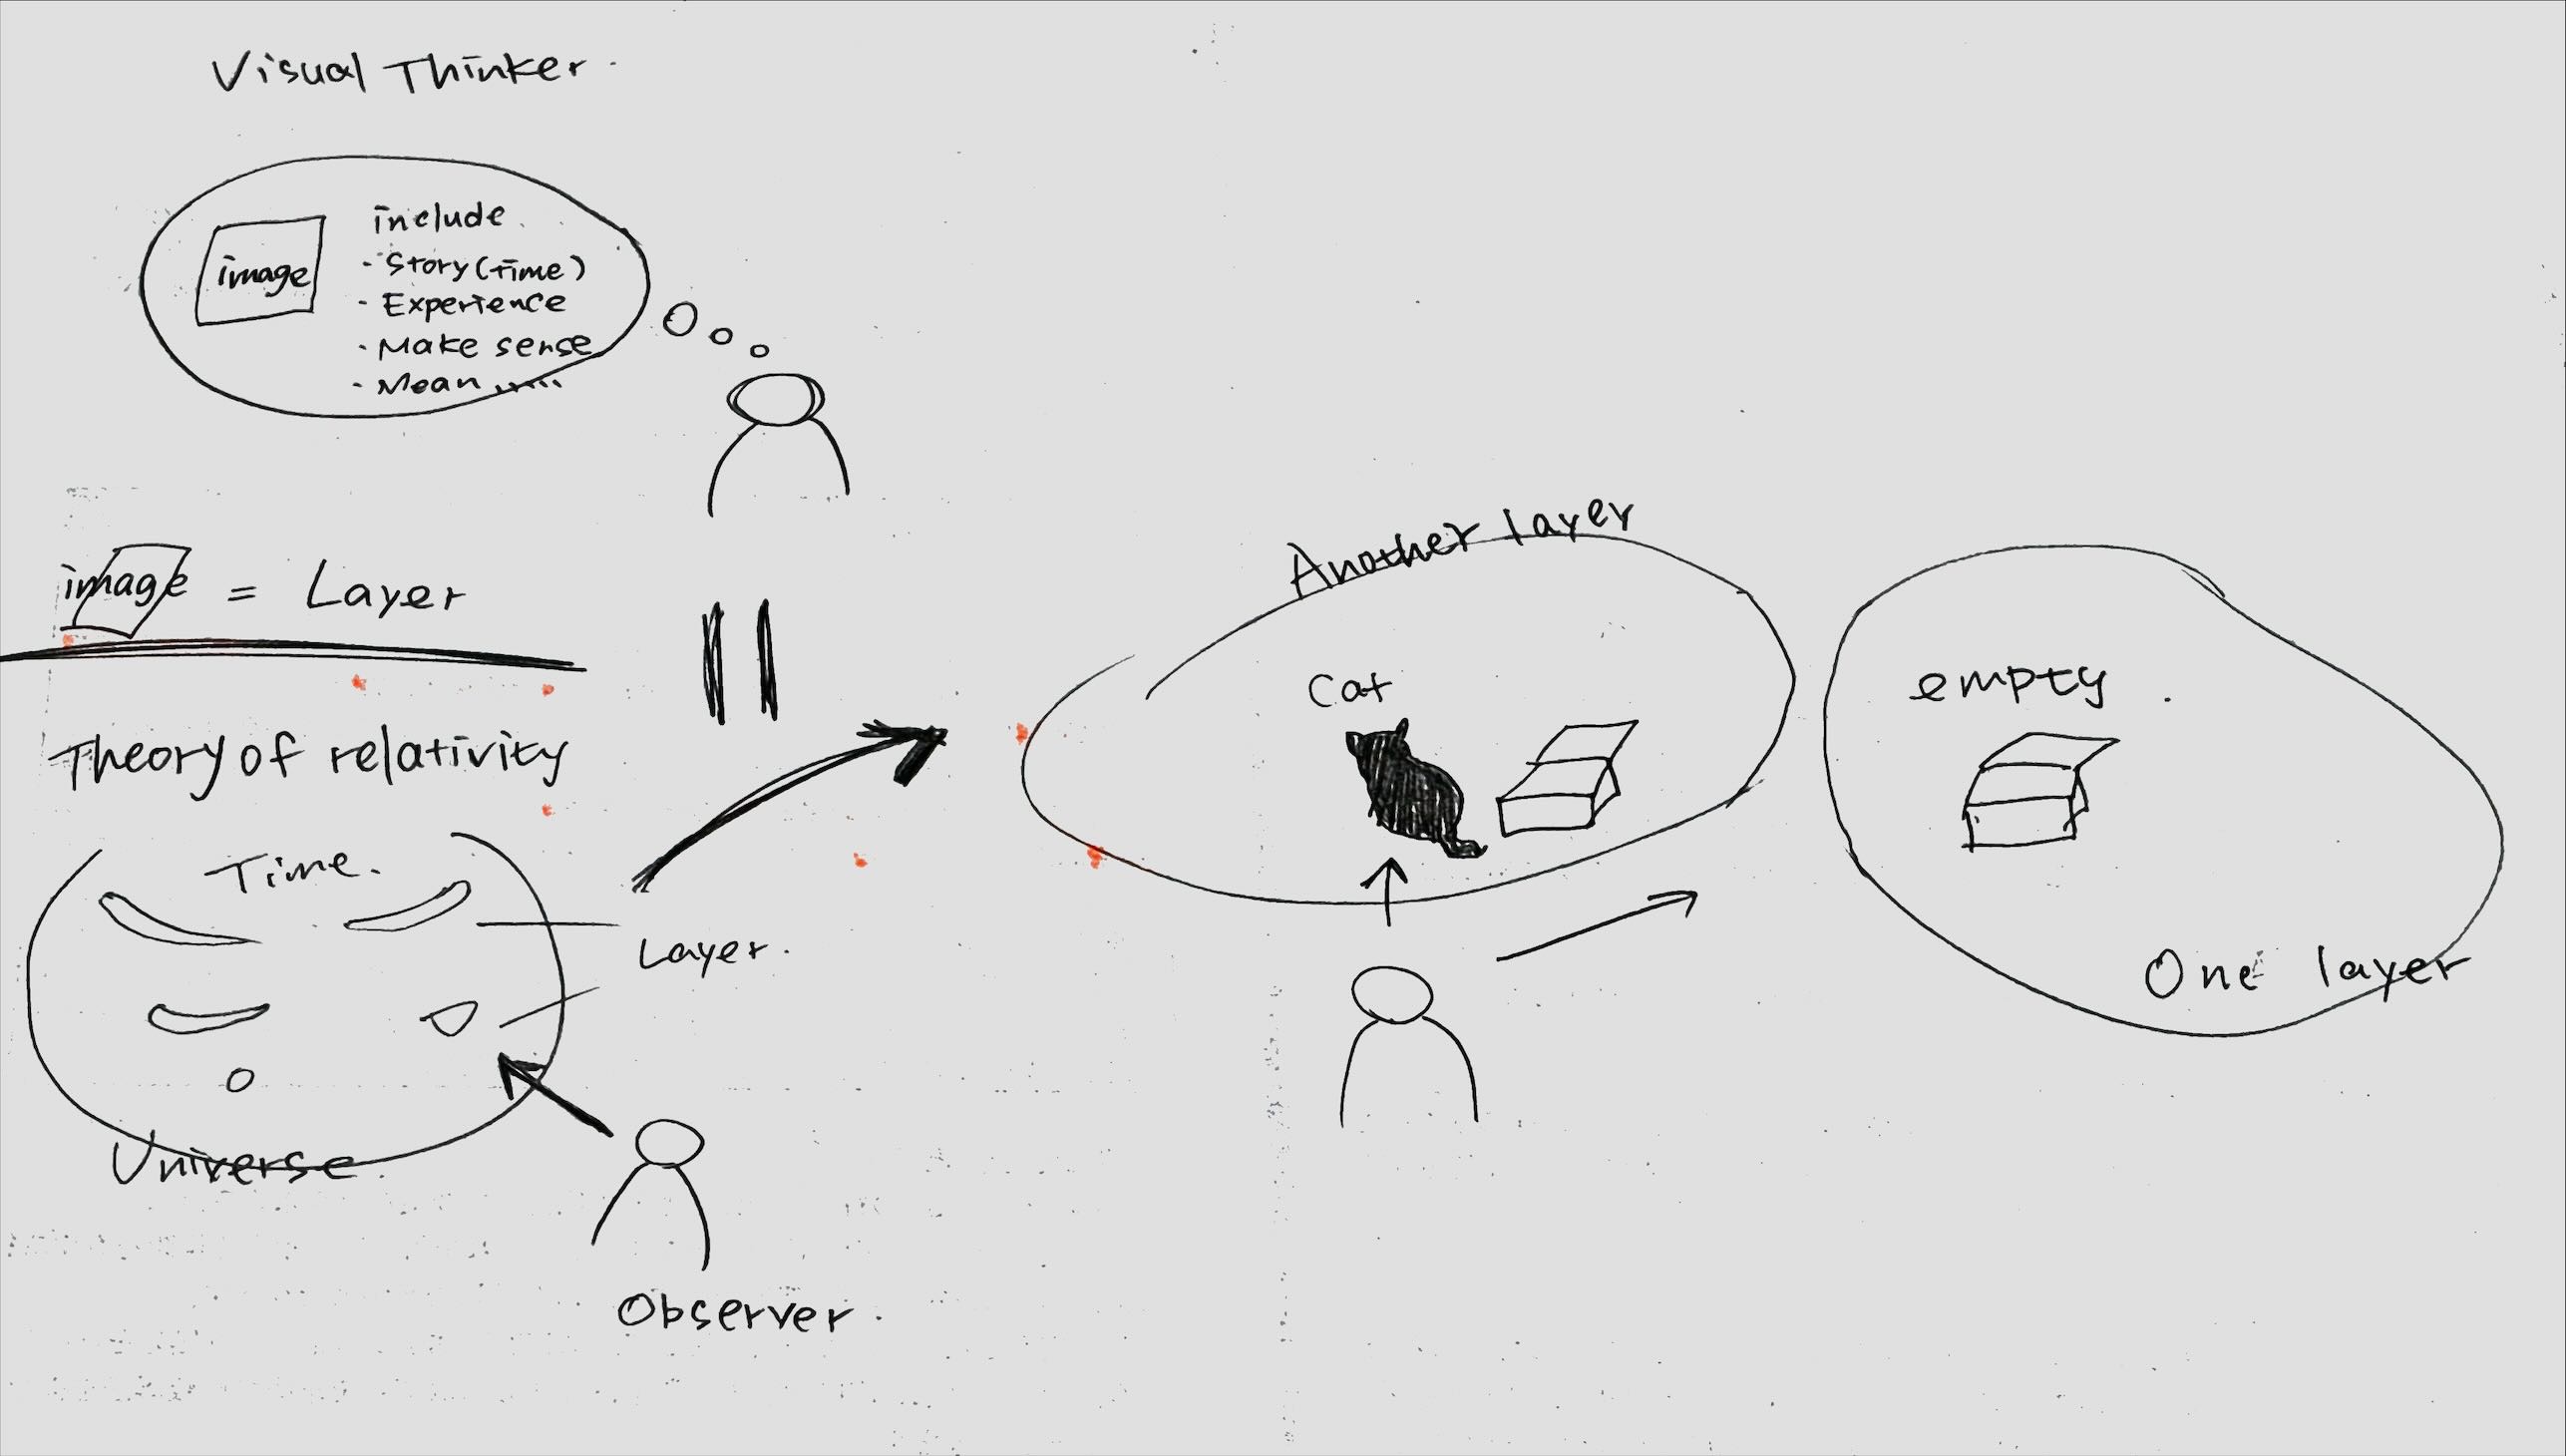 Visual Thinker.
image
include
- Story (time)
- Experience
- Make sense
- Mean .....
image = Layer
Theory of relativity
Time.
Layer.
Universe.
Observer.
Another layer
Cat
empty.
One layer